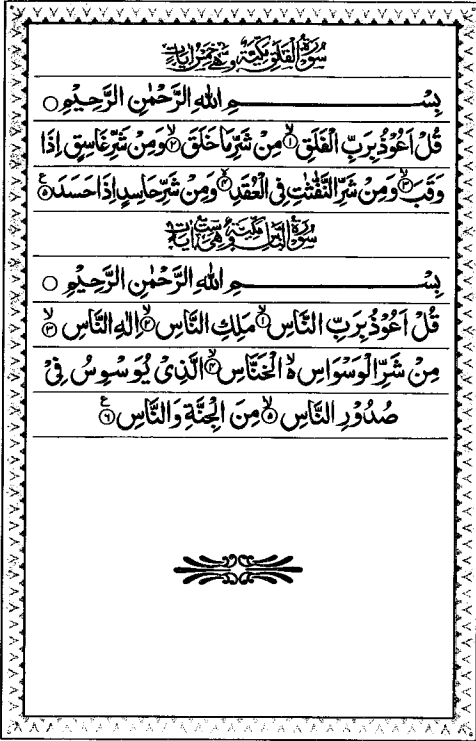 سُوْرَةُ الْفَلَقِ مَكِّيَّةٌ وَّهِيَ خَمْسُ اٰيَاتٍ
بِسْمِ اللهِ الرَّحْمٰنِ الرَّحِيْمِ ○
قُلْ اَعُوْذُ بِرَبِّ الْفَلَقِ ۙ﴿۱﴾ مِنْ شَرِّ مَا خَلَقَ ۙ﴿۲﴾ وَمِنْ شَرِّ غَاسِقٍ اِذَا
وَقَبَ ۙ﴿۳﴾ وَمِنْ شَرِّ النَّفّٰثٰتِ فِی الْعُقَدِ ۙ﴿۴﴾ وَمِنْ شَرِّ حَاسِدٍ اِذَا حَسَدَ ﴿۵﴾ ع
سُوْرَةُ النَّاسِ مَكِّيَّةٌ وَّهِيَ سِتُّ اٰيَاتٍ
بِسْمِ اللهِ الرَّحْمٰنِ الرَّحِيْمِ ○
قُلْ اَعُوْذُ بِرَبِّ النَّاسِ ۙ﴿۱﴾ مَلِكِ النَّاسِ ۙ﴿۲﴾ اِلٰهِ النَّاسِ ۙ﴿۳﴾
مِنْ شَرِّ الْوَسْوَاسِ ۬ۙ الْخَنَّاسِ ۙ﴿۴﴾ الَّذِیْ يُوَسْوِسُ فِیْ
صُدُوْرِ النَّاسِ ۙ﴿۵﴾ مِنَ الْجِنَّةِ وَالنَّاسِ ﴿۶﴾ ع